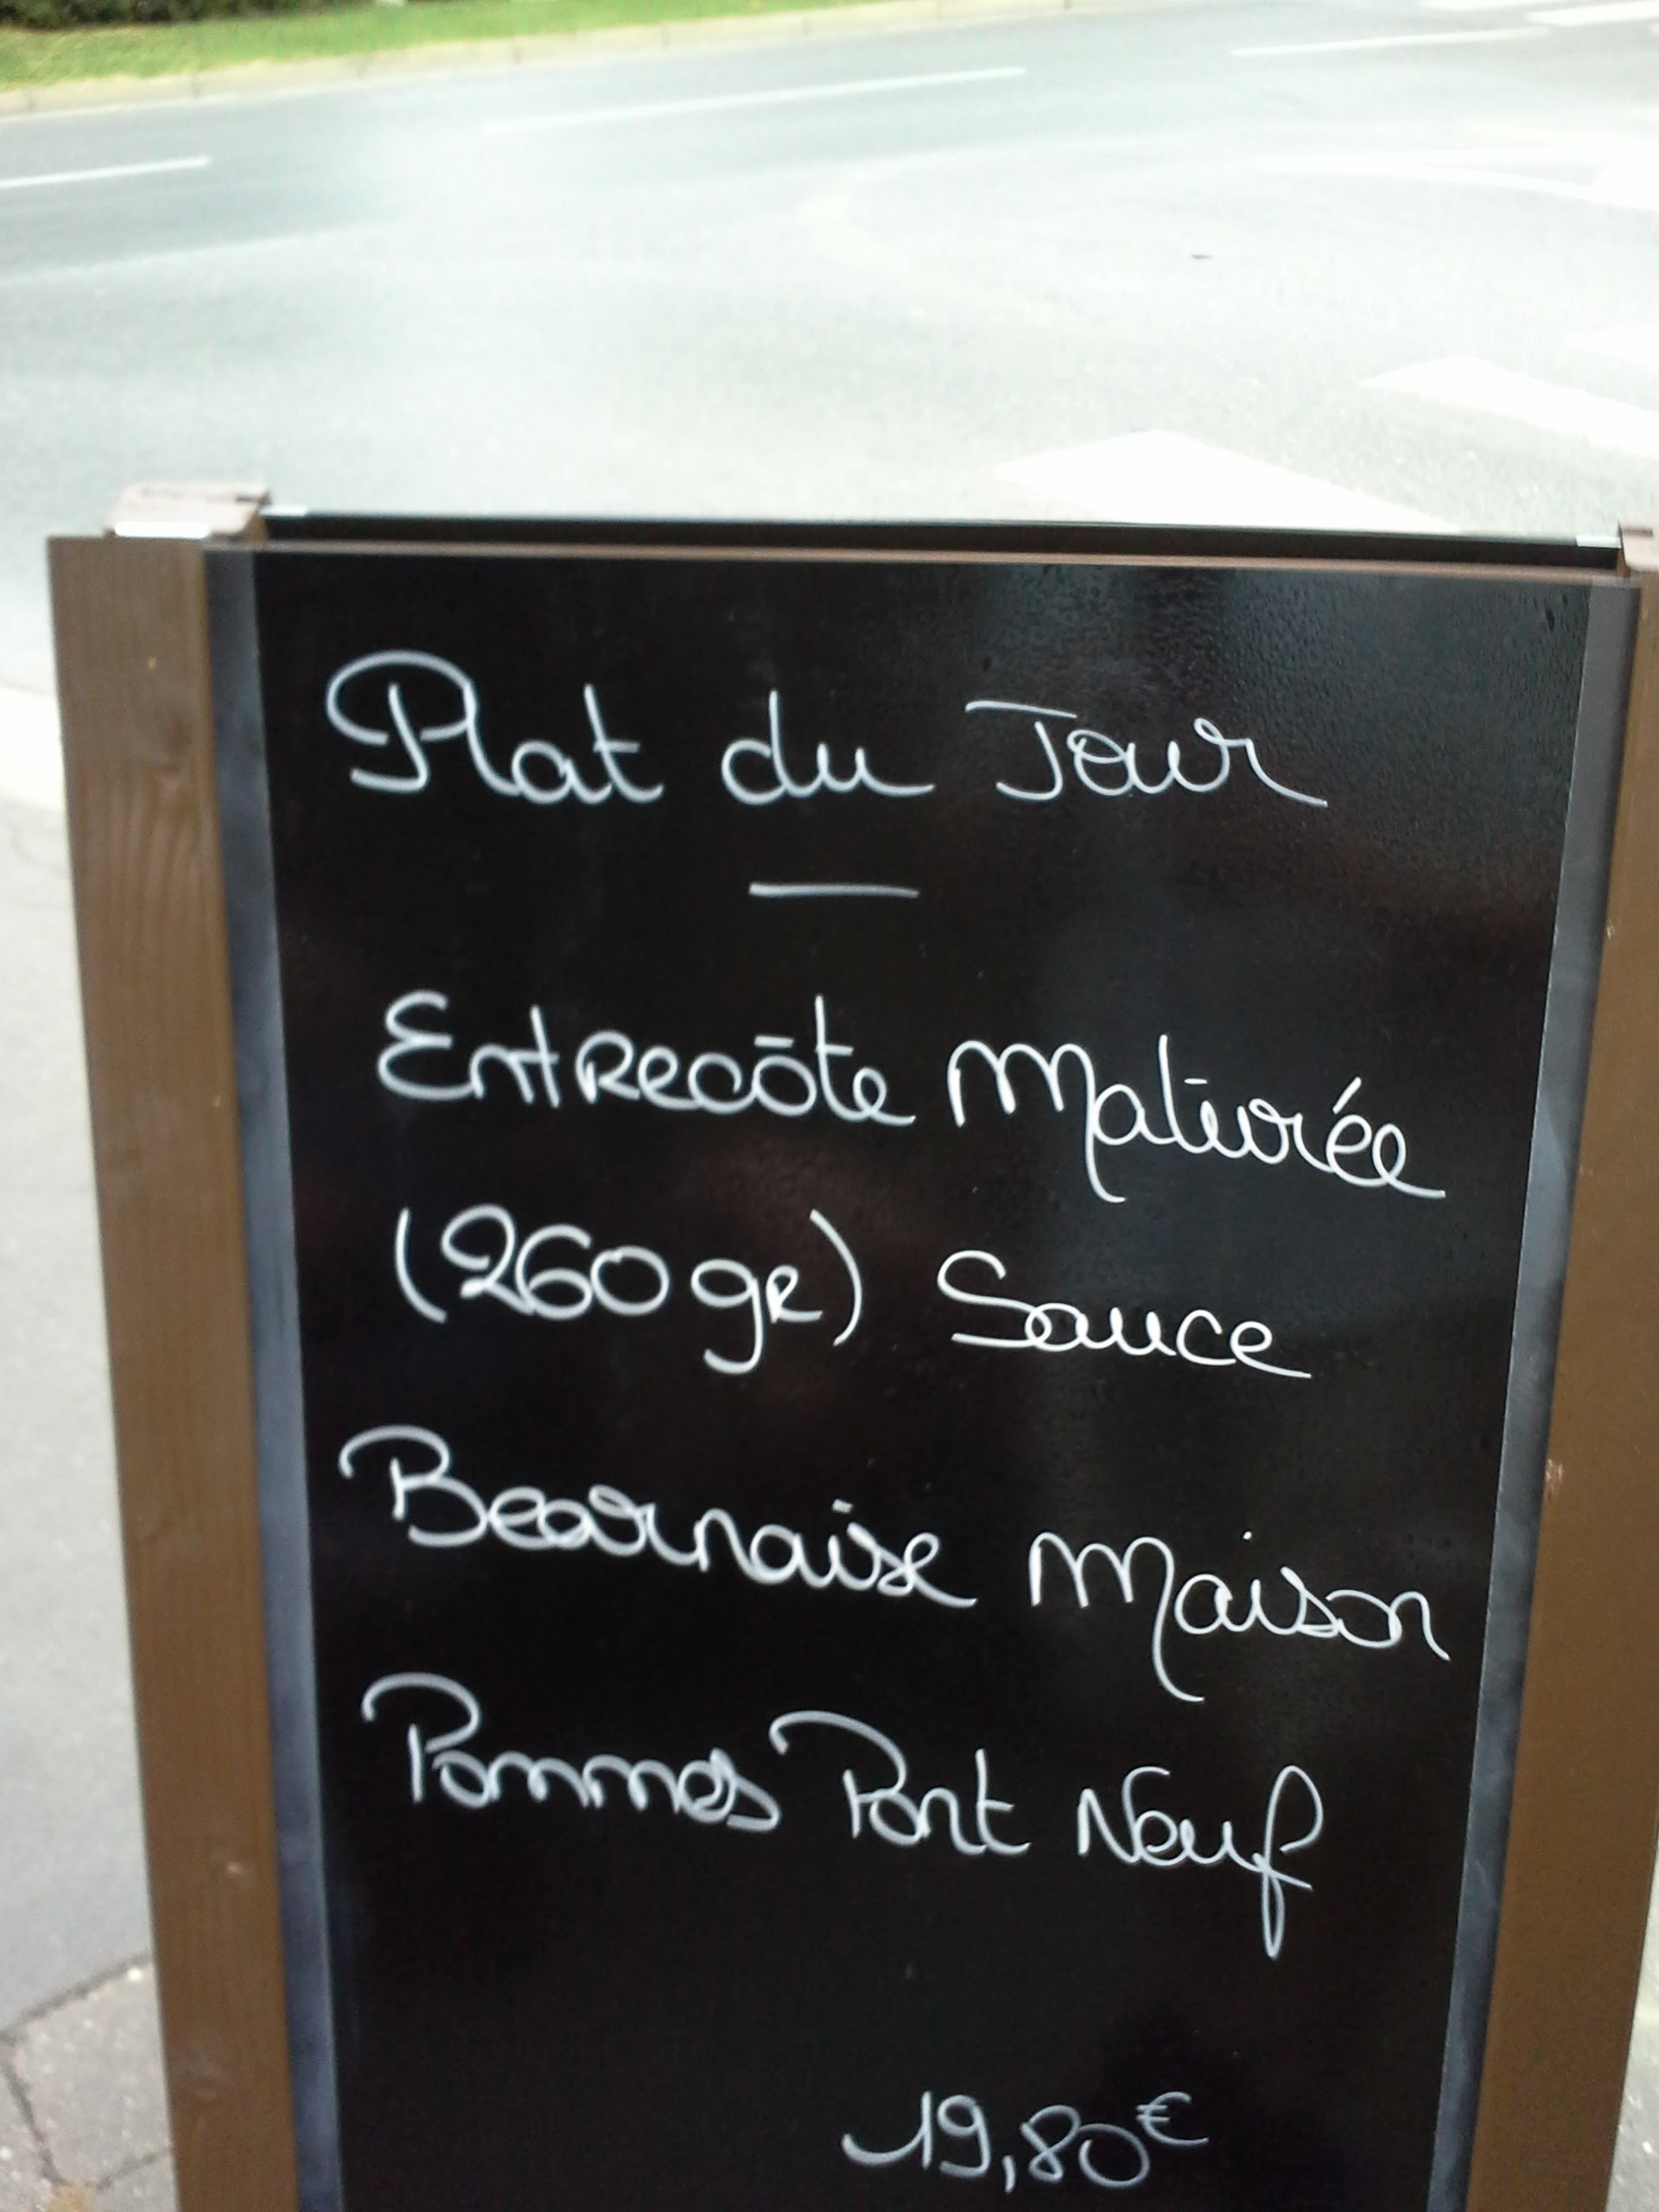 Plat du Jour
—
Entrecôte Maturée
(260 gr) Sauce
Bearnaise Maison
Pommes Pont Neuf
19,80€